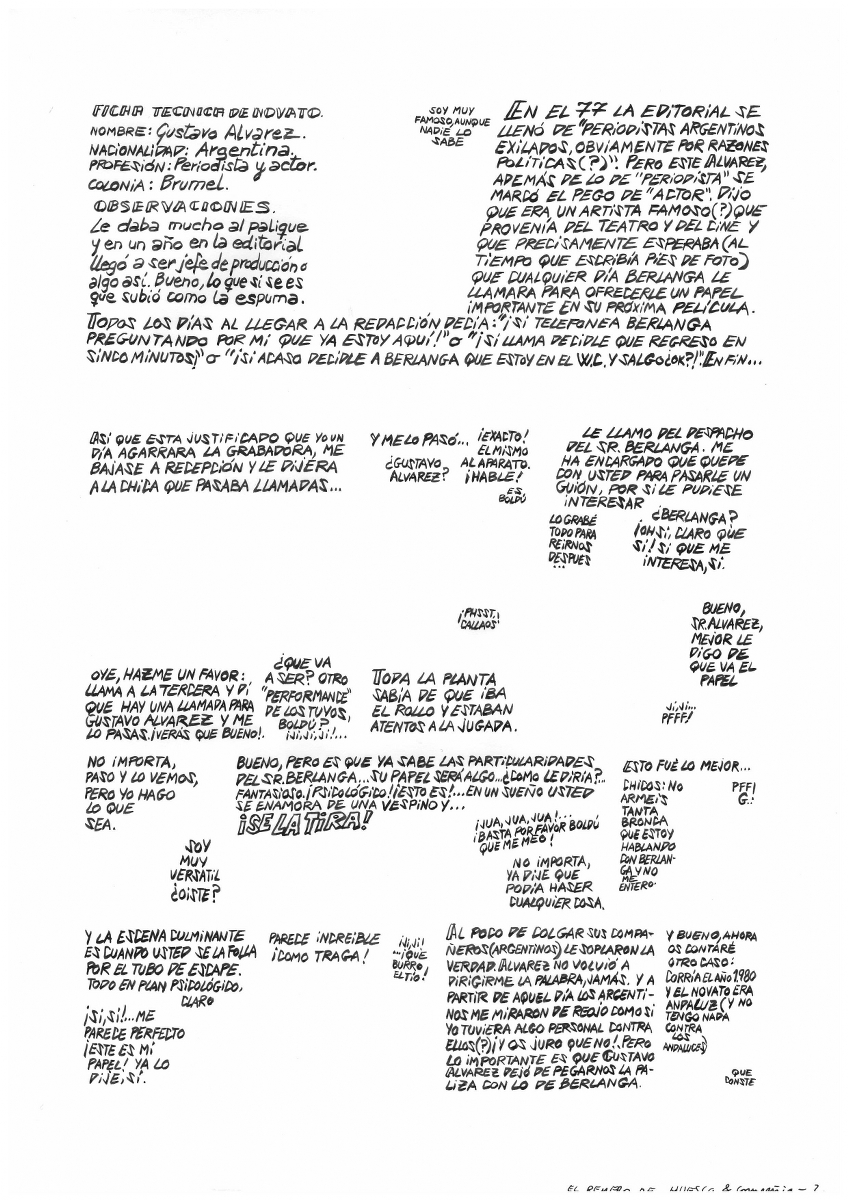 FICHA TECNICA DE NOVATO.
NOMBRE: Gustavo Alvarez.
NACIONALIDAD: Argentina.
PROFESIÓN: Periodista y actor.
COLONIA: Brumel.
OBSERVACIONES.
Le daba mucho al palique
y en un año en la editorial
llegó a ser jefe de producción o
algo así. Bueno, lo que si se es
que subió como la espuma.
SOY MUY
FAMOSO, AUNQUE
NADIE LO
SABE
EN EL 77 LA EDITORIAL SE
LLENÓ DE "PERIODISTAS ARGENTINOS
EXILADOS, OBVIAMENTE POR RAZONES
POLÍTICAS(?)". PERO ESTE ALVAREZ,
ADEMÁS DE LO DE "PERIODISTA" SE
MARCÓ EL PEGO DE "ACTOR". DIJO
QUE ERA, UN ARTISTA FAMOSO(?) QUE
PROVENÍA DEL TEATRO Y DEL CINE Y
QUE PRECISAMENTE ESPERABA (AL
TIEMPO QUE ESCRIBÍA PIES DE FOTO)
QUE CUALQUIER DÍA BERLANGA LE
LLAMARA PARA OFRECERLE UN PAPEL
IMPORTANTE EN SU PRÓXIMA PELÍCULA.
TODOS LOS DÍAS AL LLEGAR A LA REDACCIÓN DECÍA: "¡SI TELEFONEA BERLANGA
PREGUNTANDO POR MÍ QUE YA ESTOY AQUÍ!" o "¡SI LLAMA DECIDLE QUE REGRESO EN
SINCO MINUTOS!" o "¡SI ACASO DECIDLE A BERLANGA QUE ESTOY EN EL W.C. Y SALGO ¿OK?!". EN FIN...
ASÍ QUE ESTA JUSTIFICADO QUE YO UN
DÍA AGARRARA LA GRABADORA, ME
BAJASE A RECEPCIÓN Y LE DIJERA
A LA CHICA QUE PASABA LLAMADAS...
Y ME LO PASÓ...
¿GUSTAVO
ALVAREZ?
¡EXACTO!
EL MISMO
AL APARATO.
¡HABLE!
ES
BOLDÚ
LE LLAMO DEL DESPACHO
DEL SR. BERLANGA. ME
HA ENCARGADO QUE QUEDE
CON USTED PARA PASARLE UN
GUIÓN, POR SI LE PUDIESE
INTERESAR
LO GRABÉ
TODO PARA
REIRNOS
DESPUES
...
¿BERLANGA?
¡OH SI, CLARO QUE
SI! SI QUE ME
INTERESA, SI.
OYE, HAZME UN FAVOR:
LLAMA A LA TERCERA Y DI
QUE HAY UNA LLAMADA PARA
GUSTAVO ALVAREZ Y ME
LO PASAS. ¡VERÁS QUE BUENO!.
¿QUE VA
A SER? OTRO
"PERFORMANCE"
DE LOS TUYOS,
BOLDÚ?
¡JI, JI, JI!...
TODA LA PLANTA
SABÍA DE QUE IBA
EL ROLLO Y ESTABAN
ATENTOS A LA JUGADA.
¡PHSST!
CALLAOS
BUENO,
SR. ALVAREZ,
MEJOR LE
DIGO DE
QUE VA EL
PAPEL
JI, JI...
PFFF!
NO IMPORTA,
PASO Y LO VEMOS,
PERO YO HAGO
LO QUE
SEA.
SOY
MUY
VERSATIL
¿OISTE?
BUENO, PERO ES QUE YA SABE LAS PARTICULARIDADES
DEL SR. BERLANGA... SU PAPEL SERÁ ALGO... ¿COMO LE DIRÍA?..
FANTASIOSO. ¡PSICOLÓGICO! ¡ESTO ES!... EN UN SUEÑO USTED
SE ENAMORA DE UNA VESPINO Y...
¡SE LA TIRA!
¡JUA, JUA, JUA!...
¡BASTA POR FAVOR BOLDÚ
QUE ME MEO!
NO IMPORTA,
YA DIJE QUE
PODÍA HACER
CUALQUIER COSA.
ESTO FUÉ LO MEJOR...
CHICOS: NO
ARMEIS
TANTA
BRONCA
QUE ESTOY
HABLANDO
CON BERLAN-
GA Y NO
ME
ENTERO.
PFF!
G!
Y LA ESCENA CULMINANTE
ES CUANDO USTED SE LA FOLLA
POR EL TUBO DE ESCAPE.
TODO EN PLAN PSICOLÓGICO,
CLARO
¡SI, SI!... ME
PARECE PERFECTO
¡ESTE ES MI
PAPEL! YA LO
DIJE, SI.
PARECE INCREIBLE
¡COMO TRAGA!
¡JI, JI!
...¡QUE
BURRO
EL TIO!
AL POCO DE COLGAR SUS COMPA-
ÑEROS (ARGENTINOS) LE SOPLARON LA
VERDAD. ALVAREZ NO VOLVIÓ A
DIRIGIRME LA PALABRA, JAMÁS. Y A
PARTIR DE AQUEL DÍA LOS ARGENTI-
NOS ME MIRARON DE REOJO COMO SI
YO TUVIERA ALGO PERSONAL CONTRA
ELLOS(?) ¡Y OS JURO QUE NO!. PERO
LO IMPORTANTE ES QUE GUSTAVO
ALVAREZ DEJÓ DE PEGARNOS LA PA-
LIZA CON LO DE BERLANGA.
Y BUENO, AHORA
OS CONTARÉ
OTRO CASO:
CORRÍA EL AÑO 1980
Y EL NOVATO ERA
ANDALUZ (Y NO
TENGO NADA
CONTRA
LOS
ANDALUCES)
QUE
CONSTE